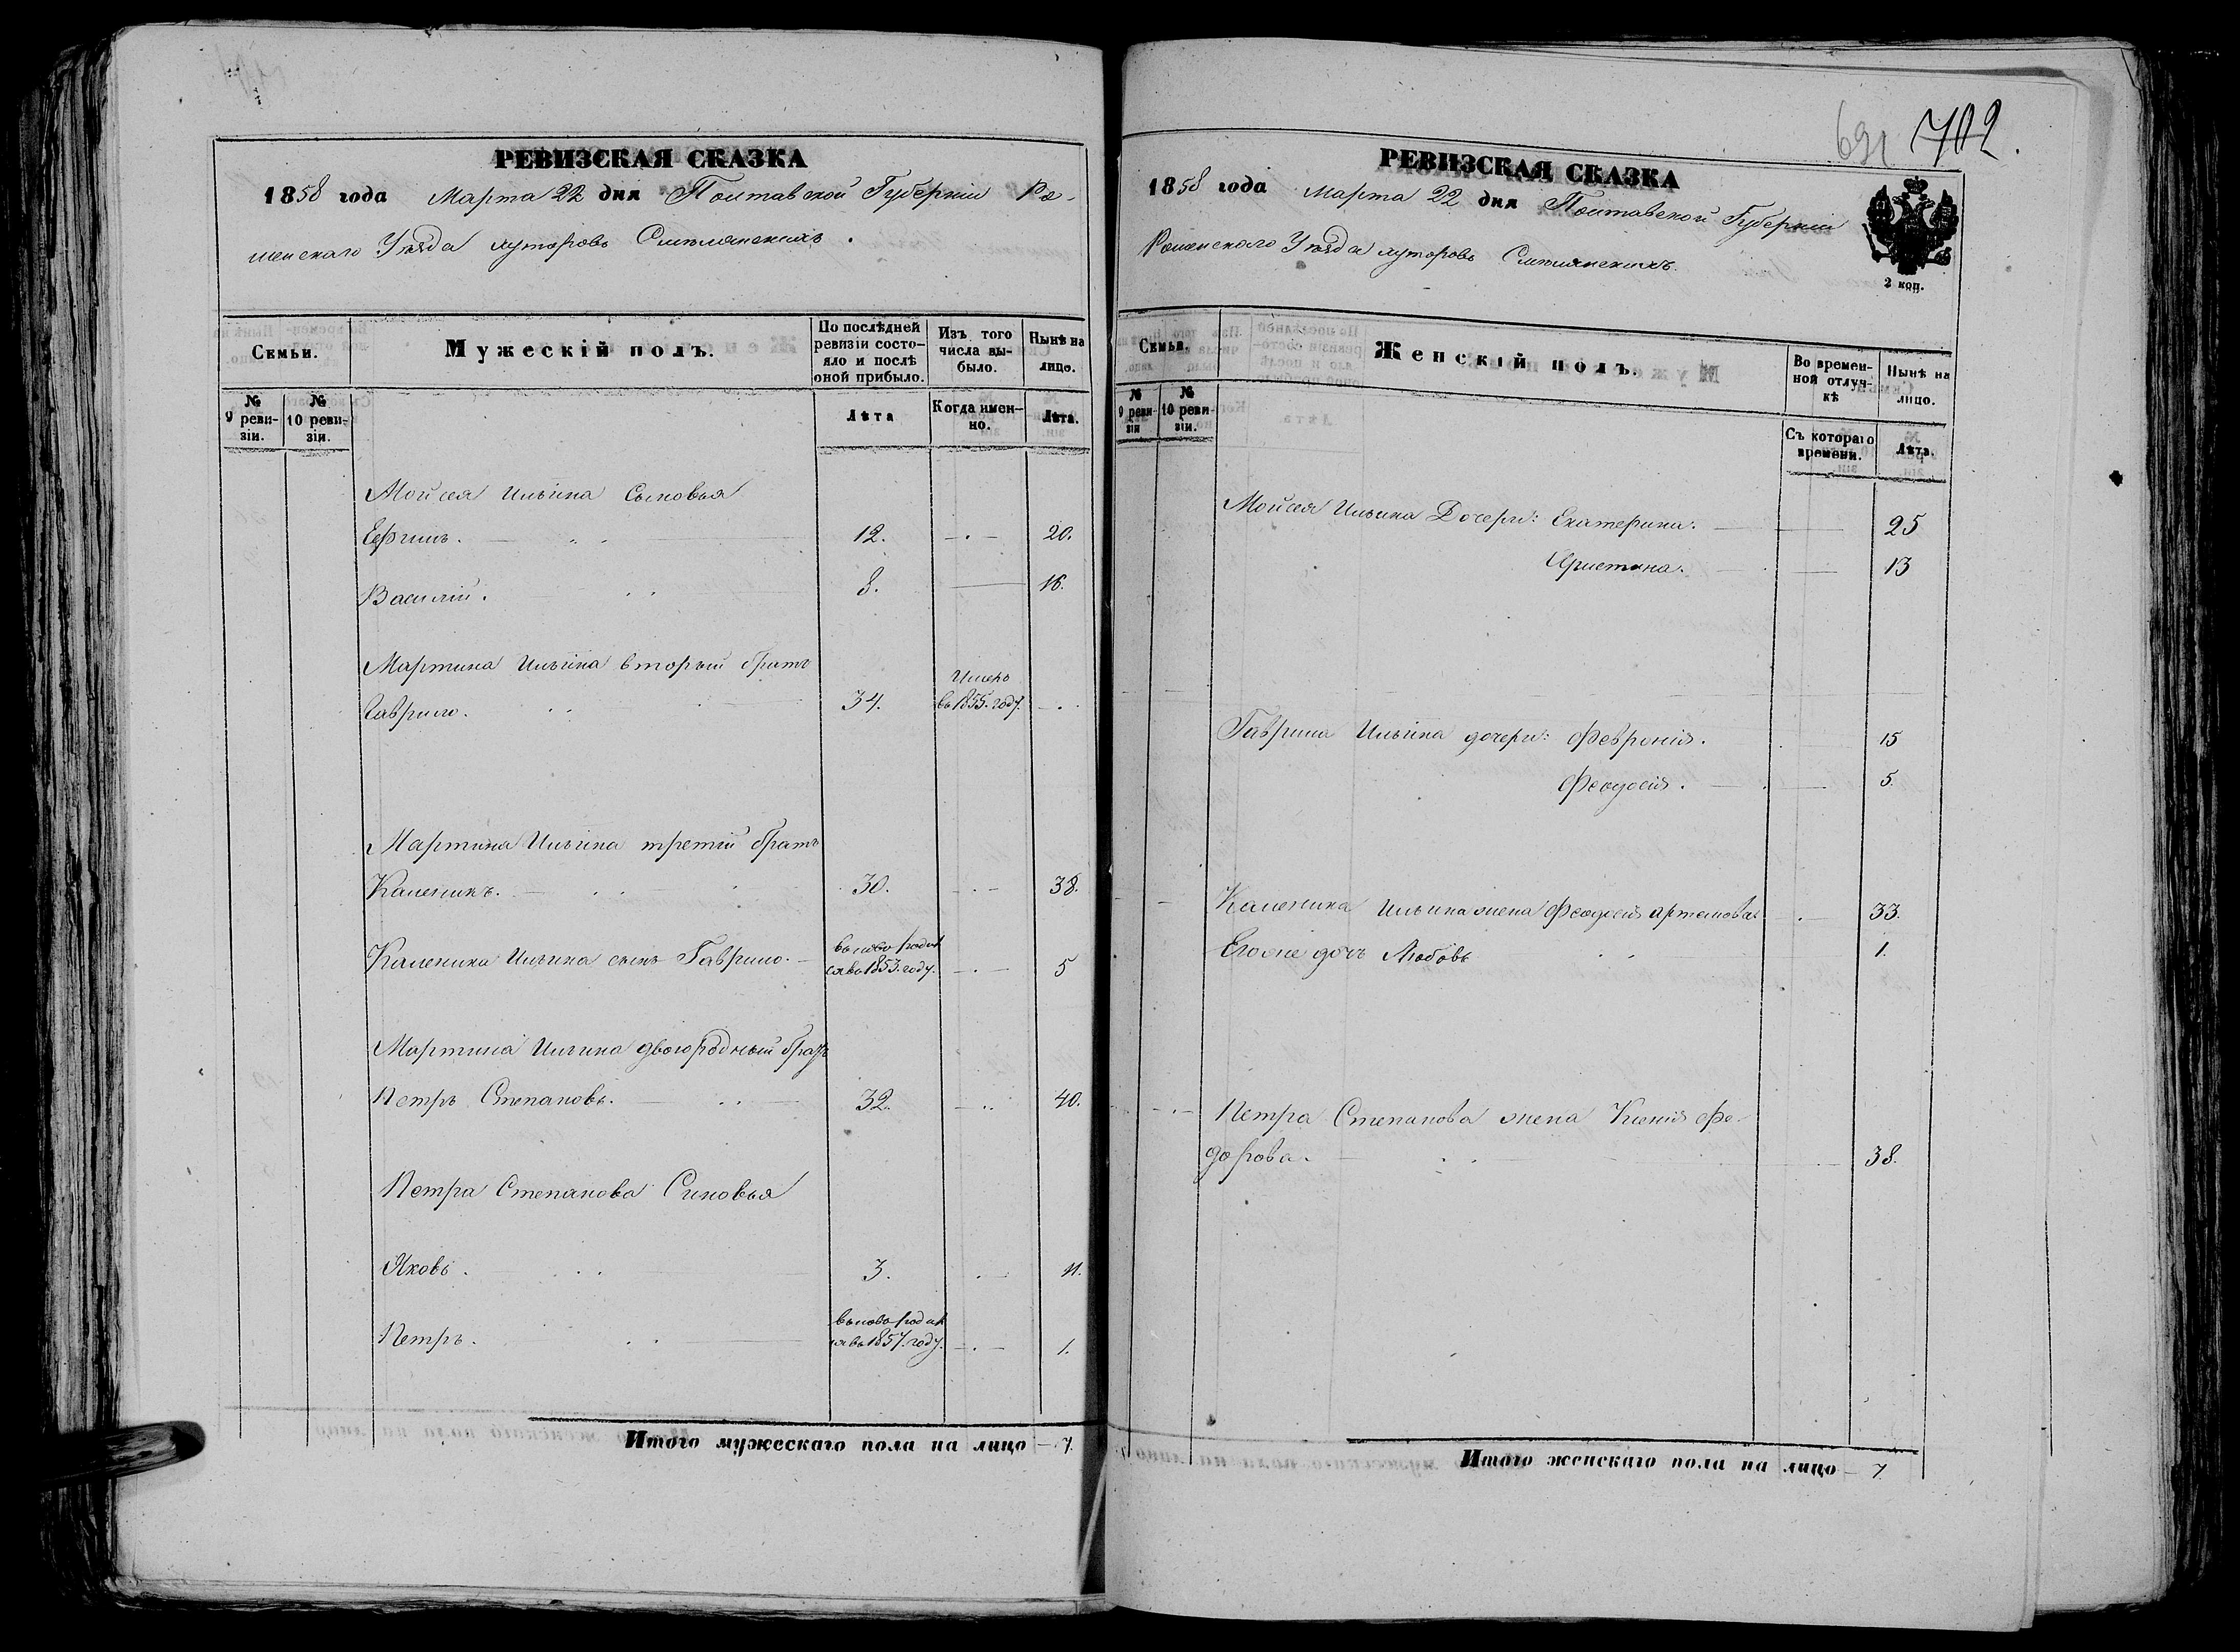 РЕВИЗСКАЯ СКАЗКА
1858 года Марта 22 дня Полтавской Губерніи Ро-
менскаго Уѣзда хуторовъ Смѣлянскихъ.
Семьи.
Мужескій полъ.
По послѣдней
ревизіи состо-
яло и послѣ
оной прибыло.
Изъ того
числа вы-
было.
Нынѣ на
лицо.
№
9 реви-
зіи.
№
10 реви-
зіи.
Лѣта
Когда имен-
но.
Лѣта.
Мойсея Ильина Сыновья
Ефимъ. 12. 20.
Василій. 8. 16.
Мартина Ильина вторый братъ
Гаврило. 34. Умеръ
въ 1855. году.
Мартина Ильина третій братъ
Каленикъ. 30. 38.
Каленика Ильина сынъ Гаврило. вьново родил
ся въ 1853. году. 5
Мартина Ильина двоюродный братъ
Петръ Степановъ. 32. 40.
Петра Степанова Синовья
Яковъ. 3. 11.
Петръ. вьново родил
ся въ 1857. году. 1.
Итого мужескаго пола на лицо 7.
691 702.
РЕВИЗСКАЯ СКАЗКА
1858 года Марта 22 дня Полтавской Губерніи
Роменскаго Уѣзда хуторовъ Смѣлянскихъ.
2 коп.
Семьи.
Женскій полъ.
Во времен-
ной отлуч-
кѣ
Нынѣ на
лицо.
№
9 реви-
зіи
№
10 реви-
зіи.
Съ котораго
времени.
Лѣта.
Мойсея Ильина Дочери: Екатерина. 25
Христина. 13
Гаврила Ильина дочери: Февронія. 15
Феодосія. 5.
Каленика Ильина жена Феодосія Артемова 33.
Егоже дочь Любовь 1.
Петра Степанова жена Ксенія Фе-
дорова. 38.
Итого женскаго пола на лицо 7